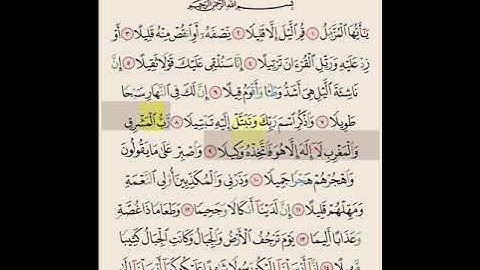 بِسْمِ اللَّهِ الرَّحْمَٰنِ الرَّحِيمِ
يَٰٓأَيُّهَا ٱلْمُزَّمِّلُ ١ قُمِ ٱلَّيْلَ إِلَّا قَلِيلًا ٢ نِّصْفَهُۥٓ أَوِ ٱنقُصْ مِنْهُ قَلِيلًا ٣ أَوْ
زِدْ عَلَيْهِ وَرَتِّلِ ٱلْقُرْءَانَ تَرْتِيلًا ٤ إِنَّا سَنُلْقِى عَلَيْكَ قَوْلًا ثَقِيلًا ٥ إِنَّ
نَاشِئَةَ ٱلَّيْلِ هِىَ أَشَدُّ وَطْـًٔا وَأَقْوَمُ قِيلًا ٦ إِنَّ لَكَ فِى ٱلنَّهَارِ سَبْحًا
طَوِيلًا ٧ وَٱذْكُرِ ٱسْمَ رَبِّكَ وَتَبَتَّلْ إِلَيْهِ تَبْتِيلًا ٨ رَّبُّ ٱلْمَشْرِقِ
وَٱلْمَغْرِبِ لَآ إِلَٰهَ إِلَّا هُوَ فَٱتَّخِذْهُ وَكِيلًا ٩ وَٱصْبِرْ عَلَىٰ مَا يَقُولُونَ
وَٱهْجُرْهُمْ هَجْرًا جَمِيلًا ١٠ وَذَرْنِى وَٱلْمُكَذِّبِينَ أُو۟لِى ٱلنَّعْمَةِ
وَمَهِّلْهُمْ قَلِيلًا ١١ إِنَّ لَدَيْنَآ أَنكَالًا وَجَحِيمًا ١٢ وَطَعَامًا ذَا غُصَّةٍ
وَعَذَابًا أَلِيمًا ١٣ يَوْمَ تَرْجُفُ ٱلْأَرْضُ وَٱلْجِبَالُ وَكَانَتِ ٱلْجِبَالُ كَثِيبًا
مَّهِيلًا ١٤ إِنَّآ أَرْسَلْنَآ إِلَيْكُمْ رَسُولًا شَٰهِدًا عَلَيْكُمْ كَمَآ أَرْسَلْنَآ إِلَىٰ